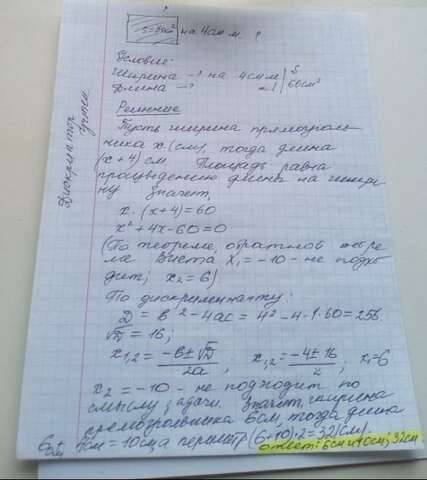 S=60см² на 4см м. ?
Условие:
Ширина - ? на 4см м
Длина - ?
S
60см²
Дискриминантер
Решение
Пусть ширина прямоуголь-
ника x (см), тогда длина
(x+4) см. Площадь равна
произведению длина на шири-
ну. Значит,
x·(x+4)=60
x²+4x-60=0
(По теореме, обратной теоре-
ме Виета x₁=-10 - не подхо-
дит; x₂=6)
По дискриминанту:
D = в²-4ac = 4²-4·1·60=256.
√D = 16;
x₁,₂ = -в±√D / 2a ; x₁,₂ = -4±16 / 2 ; x₁=6
x₂ = -10 - не подходит по
смыслу задачи. Значит, ширина
прямоугольника 6см, тогда длина
6+4см=10см, а периметр (6+10)·2=32(см).
ответ: 6см и 10см; 32см.